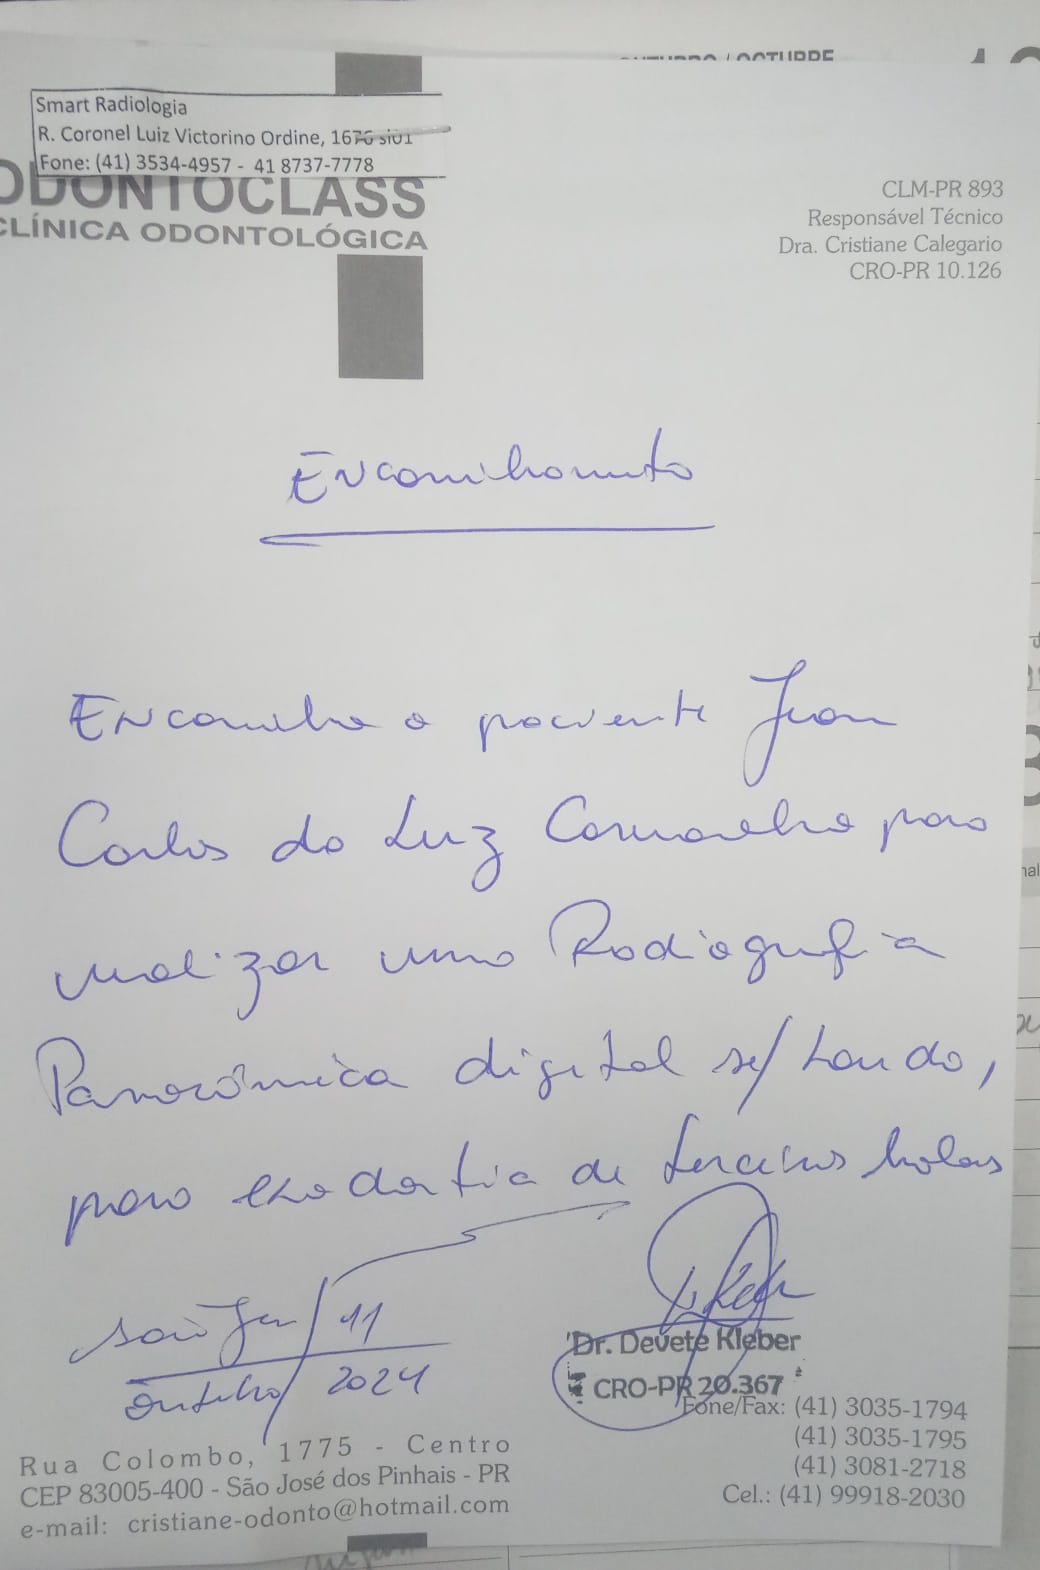 OUTUBRO / OCTUBRE
Smart Radiologia
R. Coronel Luiz Victorino Ordine, 1676 sl01
Fone: (41) 3534-4957 - 41 8737-7778
ODONTOCLASS
CLÍNICA ODONTOLÓGICA
CLM-PR 893
Responsável Técnico
Dra. Cristiane Calegario
CRO-PR 10.126
Encaminhamento
Encaminho o paciente Juan
Carlos da Luz Carvalho para
realizar uma Radiografia
Panorâmica digital s/ Laudo,
para exodontia de terceiros molares
São José / 11
Outubro / 2024
Dr. Devete Kleber
CRO-PR 20.367
Fone/Fax: (41) 3035-1794
(41) 3035-1795
(41) 3081-2718
Cel.: (41) 99918-2030
Rua Colombo, 1775 - Centro
CEP 83005-400 - São José dos Pinhais - PR
e-mail: cristiane-odonto@hotmail.com